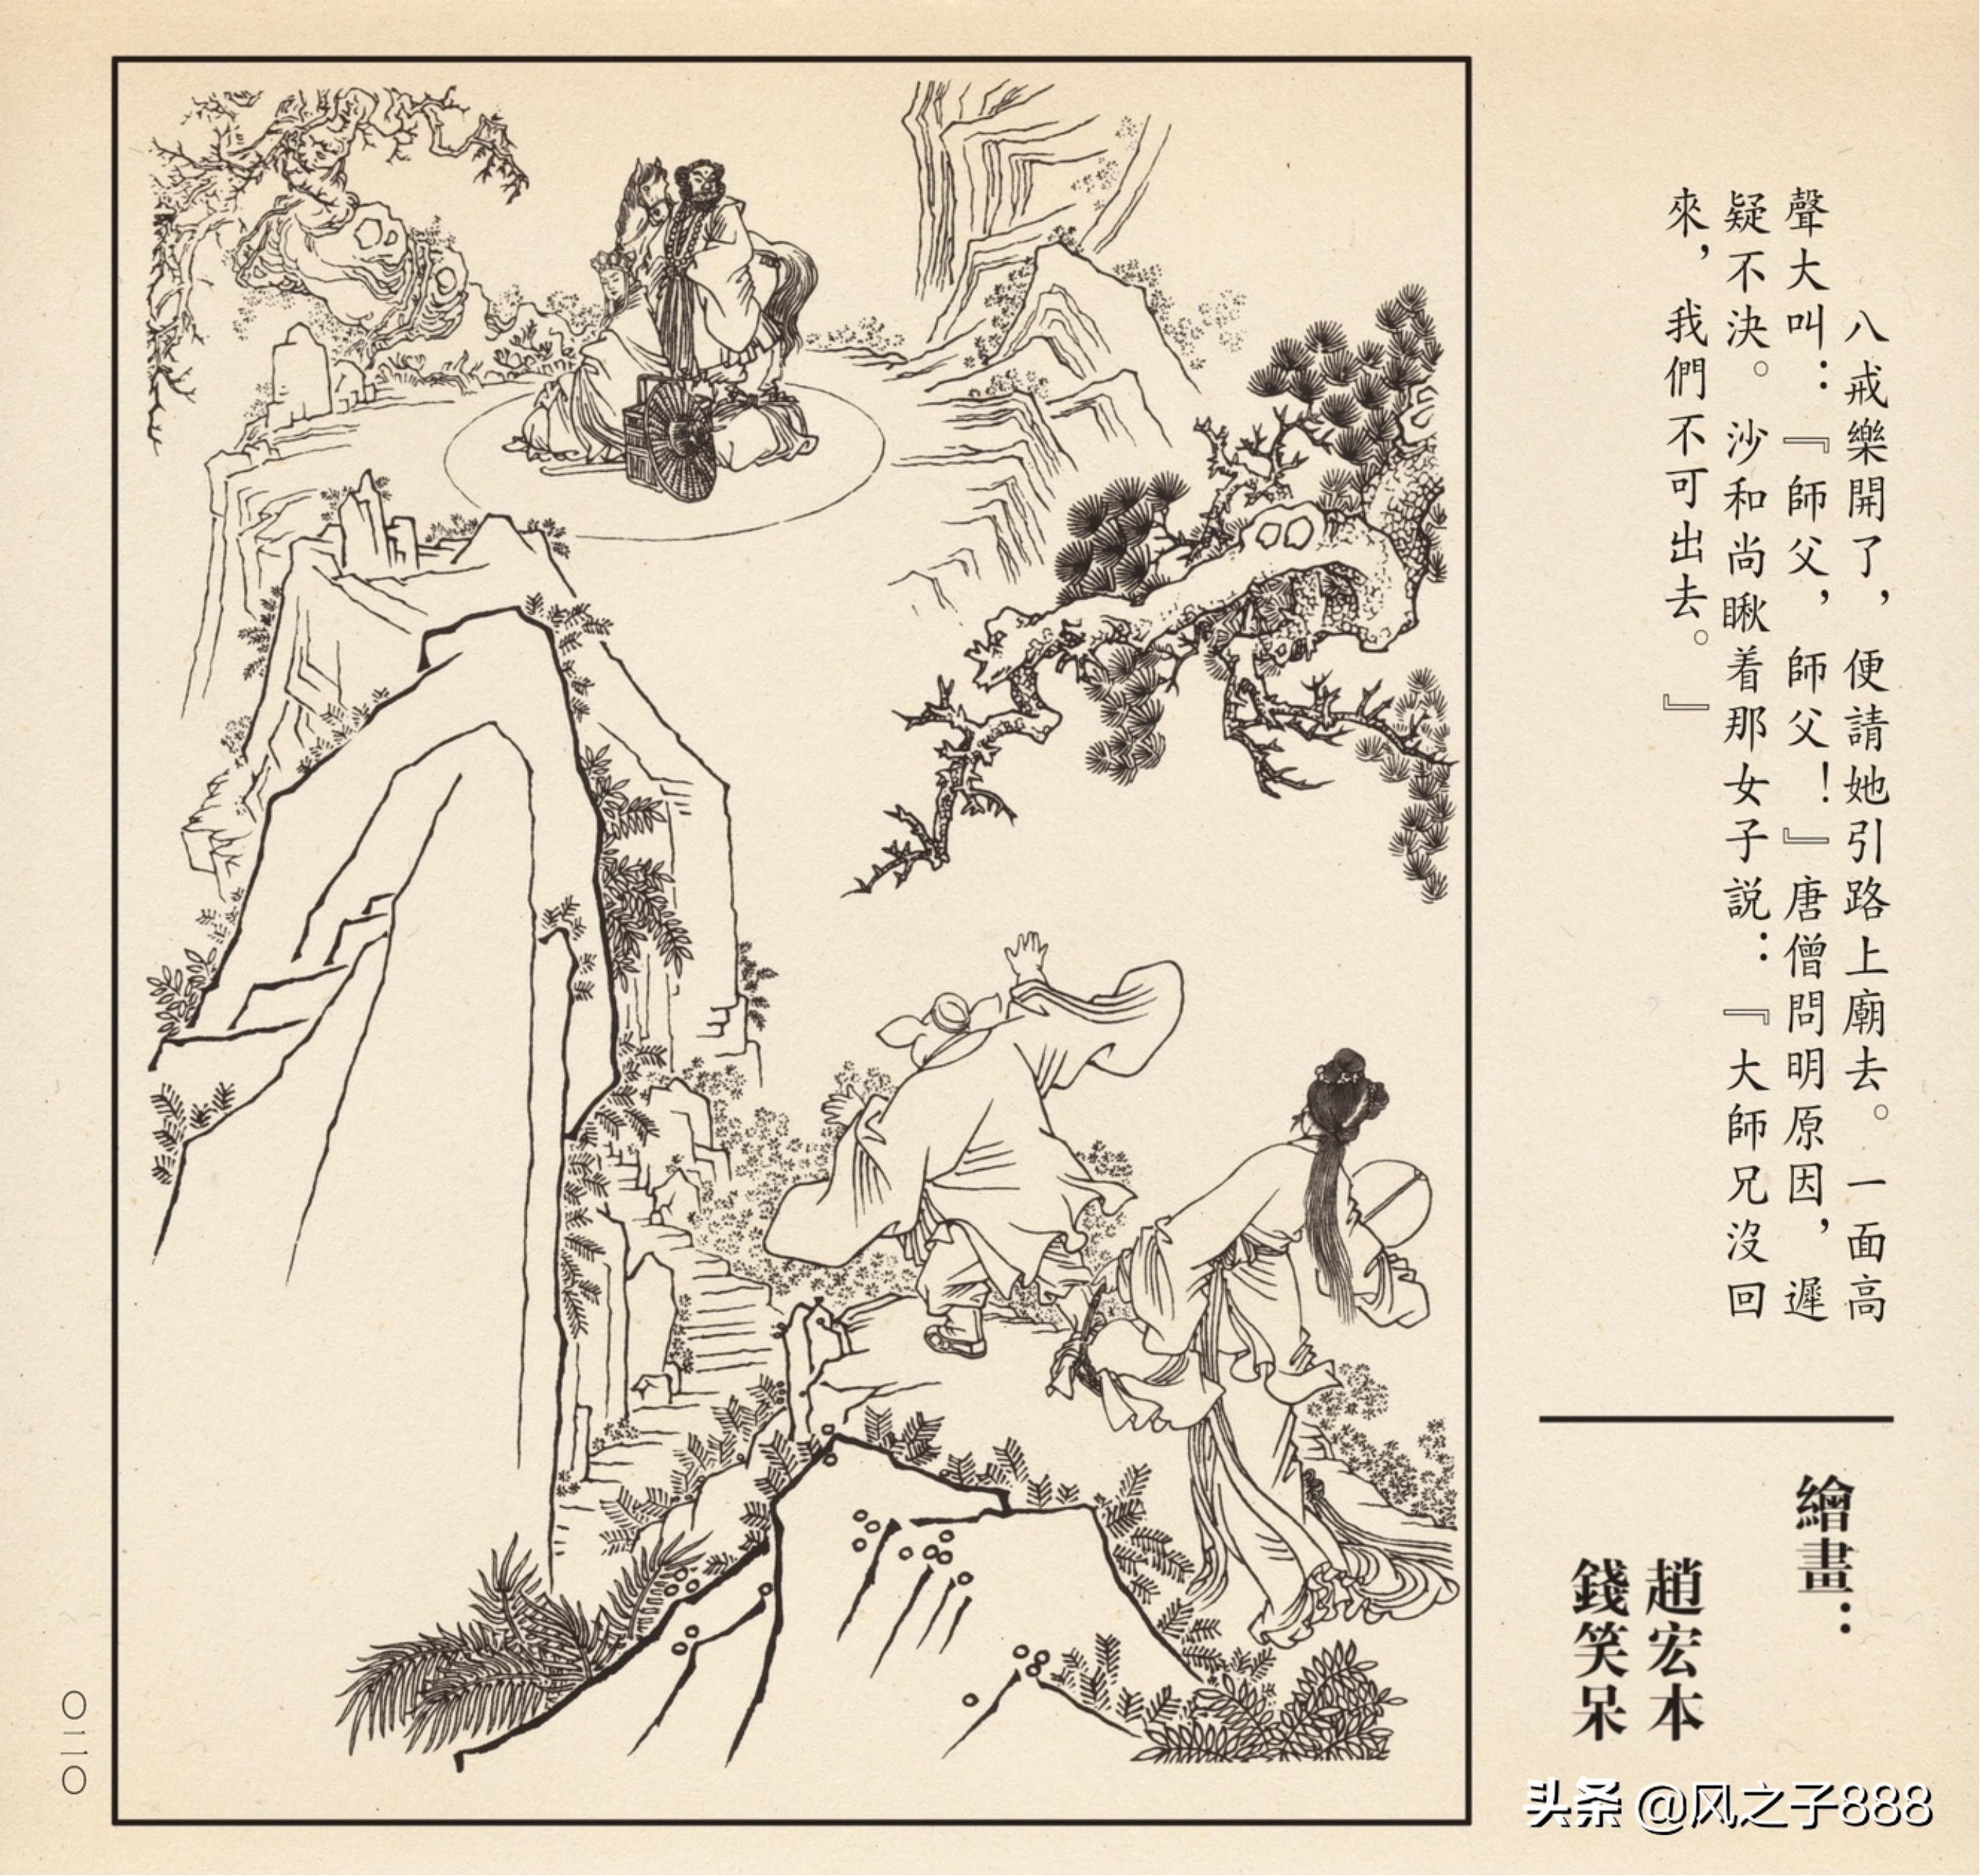 八戒樂開了，便請她引路上廟去。一面高
聲大叫：『師父，師父！』唐僧問明原因，遲
疑不決。沙和尚瞅着那女子説：『大師兄沒回
來，我們不可出去。』
繪畫：
趙宏本
錢笑呆
〇一一〇
头条 @风之子888